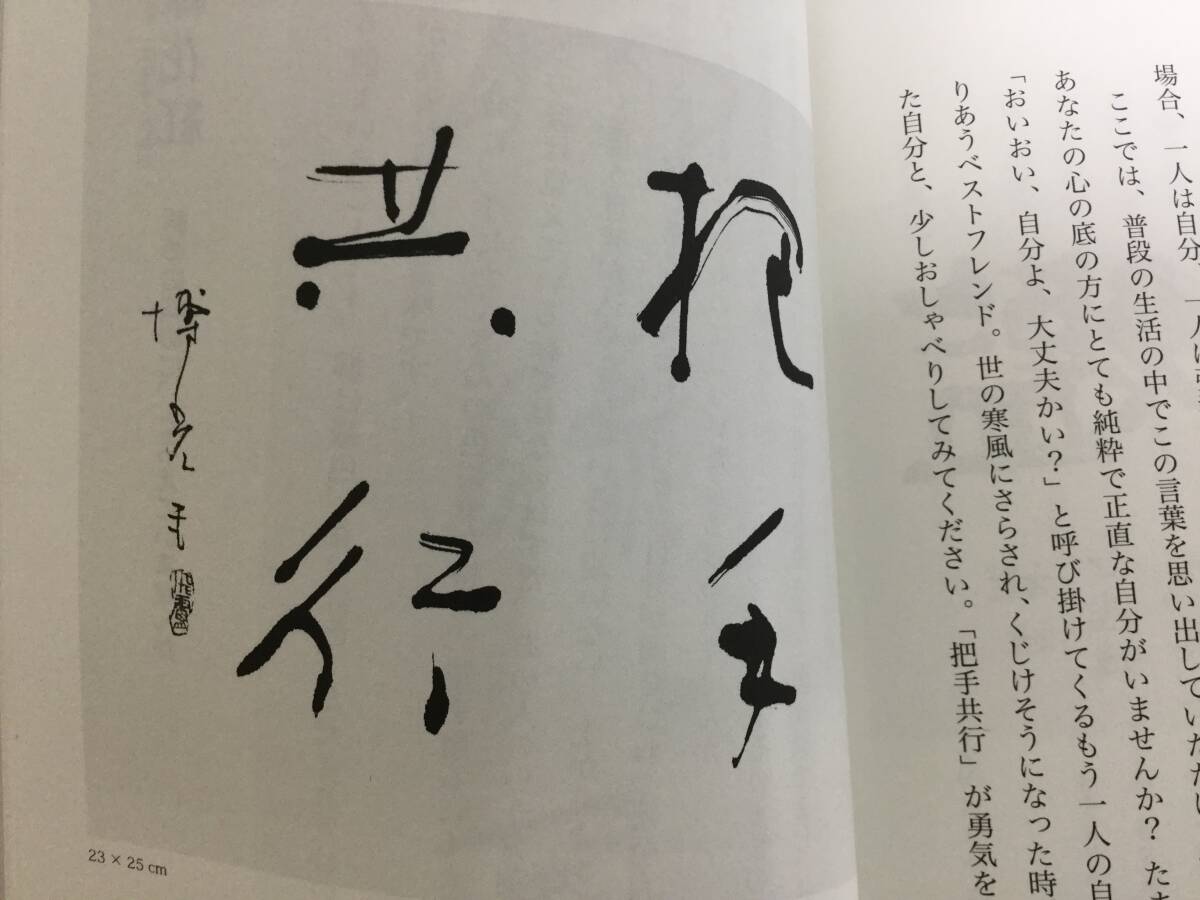 場合、一人は自分、一人は
ここでは、普段の生活の中でこの言葉を思い出していただい
あなたの心の底の方にとても純粋で正直な自分がいませんか？ たま
「おいおい、自分よ、大丈夫かい？」と呼び掛けてくるもう一人の自
りあうベストフレンド。世の寒風にさらされ、くじけそうになった時
た自分と、少しおしゃべりしてみてください。「把手共行」が勇気を
把手
共行
23 × 25 cm